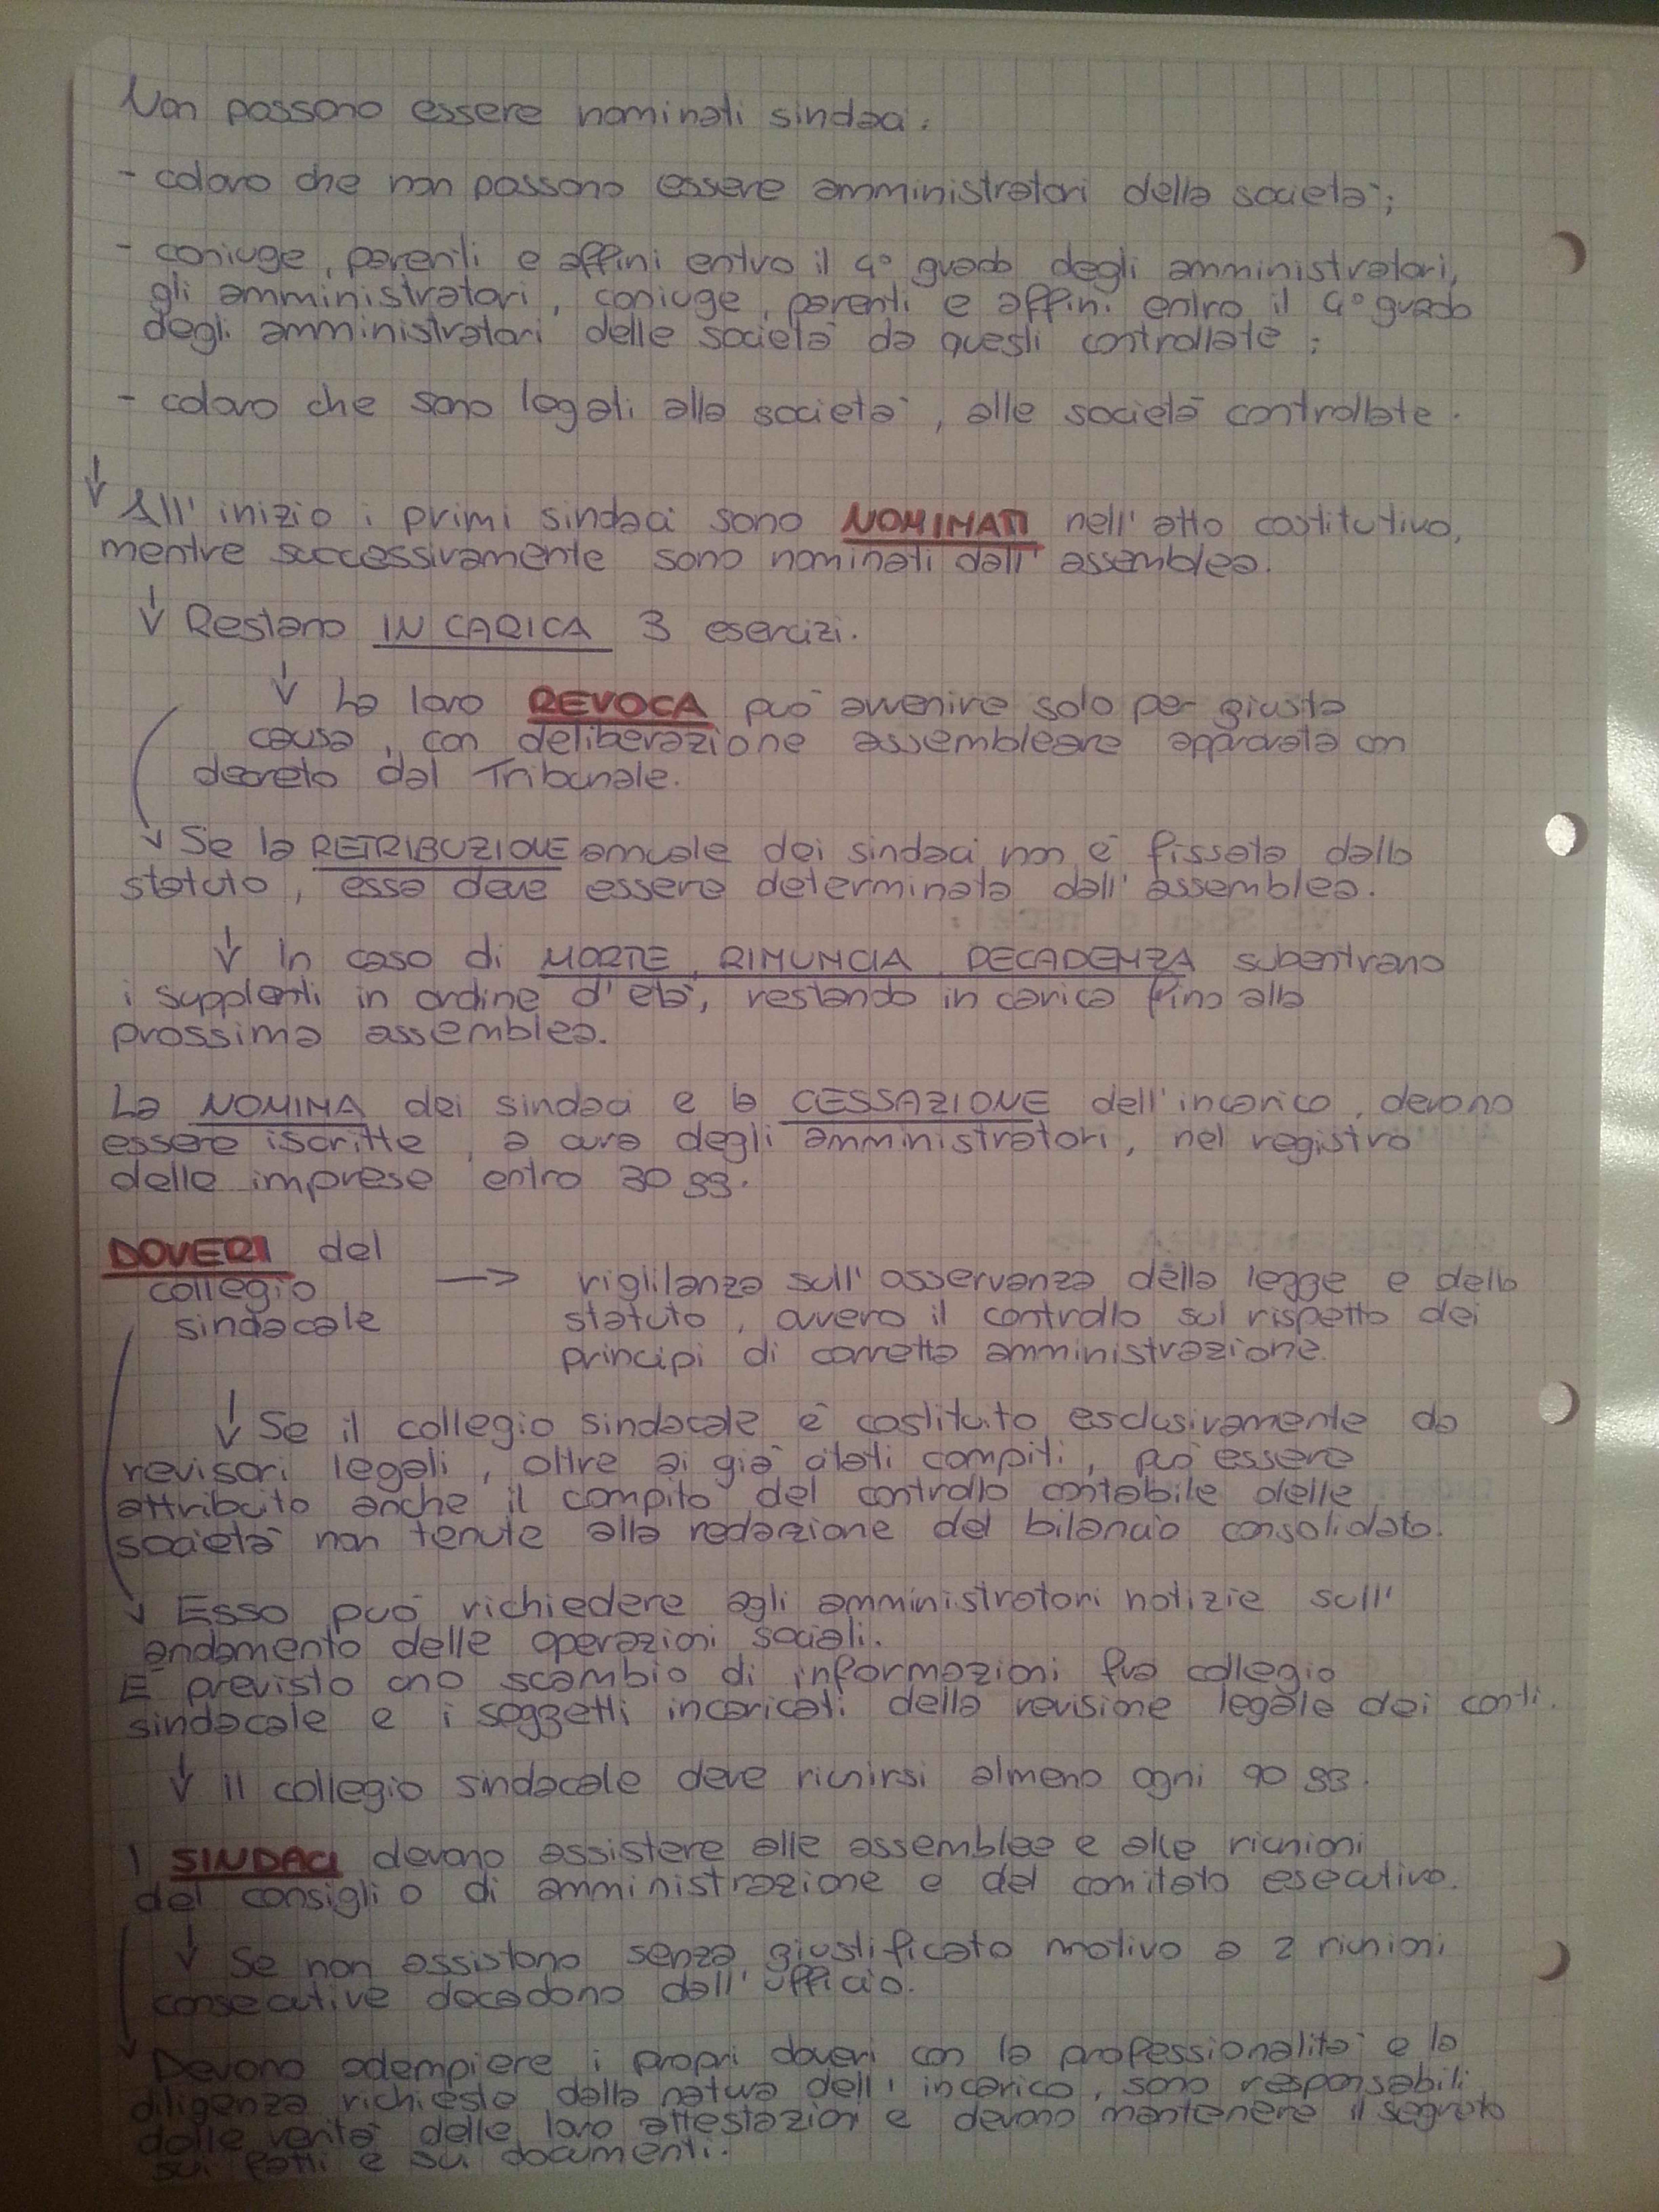 Non possono essere nominati sindaci:
- coloro che non possono essere amministratori della società;
- coniuge, parenti e affini entro il 4° grado degli amministratori,
gli amministratori, coniuge, parenti e affini entro il 4° grado
degli amministratori delle società da questi controllate;
- coloro che sono legati alla società, alle società controllate.
↓ All'inizio i primi sindaci sono NOMINATI nell'atto costitutivo,
mentre successivamente sono nominati dall'assemblea.
↓ Restano IN CARICA 3 esercizi.
↓ La loro REVOCA può avvenire solo per giusta
causa, con deliberazione assembleare approvata con
decreto dal Tribunale.
↓ Se la RETRIBUZIONE annuale dei sindaci non è fissata dallo
statuto, essa deve essere determinata dall'assemblea.
↓ In caso di MORTE, RINUNCIA, DECADENZA subentrano
i supplenti in ordine d'età, restando in carica fino alla
prossima assemblea.
La NOMINA dei sindaci e la CESSAZIONE dell'incarico, devono
essere iscritte, a cura degli amministratori, nel registro
delle imprese entro 30 gg.
DOVERI del
collegio → viglilanza sull'osservanza della legge e dello
sindacale statuto, ovvero il controllo sul rispetto dei
principi di corretta amministrazione.
↓ Se il collegio sindacale è costituito esclusivamente da
revisori legali, oltre ai già citati compiti, può essere
attribuito anche il compito del controllo contabile delle
società non tenute alla redazione del bilancio consolidato.
↓ Esso può richiedere agli amministratori notizie sull'
andamento delle operazioni sociali.
È previsto uno scambio di informazioni fra collegio
sindacale e i soggetti incaricati della revisione legale dei conti.
↓ Il collegio sindacale deve riunirsi almeno ogni 90 gg.
I SINDACI devono assistere alle assemblee e alle riunioni
del consiglio di amministrazione e del comitato esecutivo.
↓ Se non assistono senza giustificato motivo a 2 riunioni
consecutive decadono dall'ufficio.
↓ Devono adempiere i propri doveri con la professionalità e la
diligenza richieste dalla natura dell'incarico, sono responsabili
della verità delle loro attestazioni e devono mantenere il segreto
sui fatti e sui documenti.